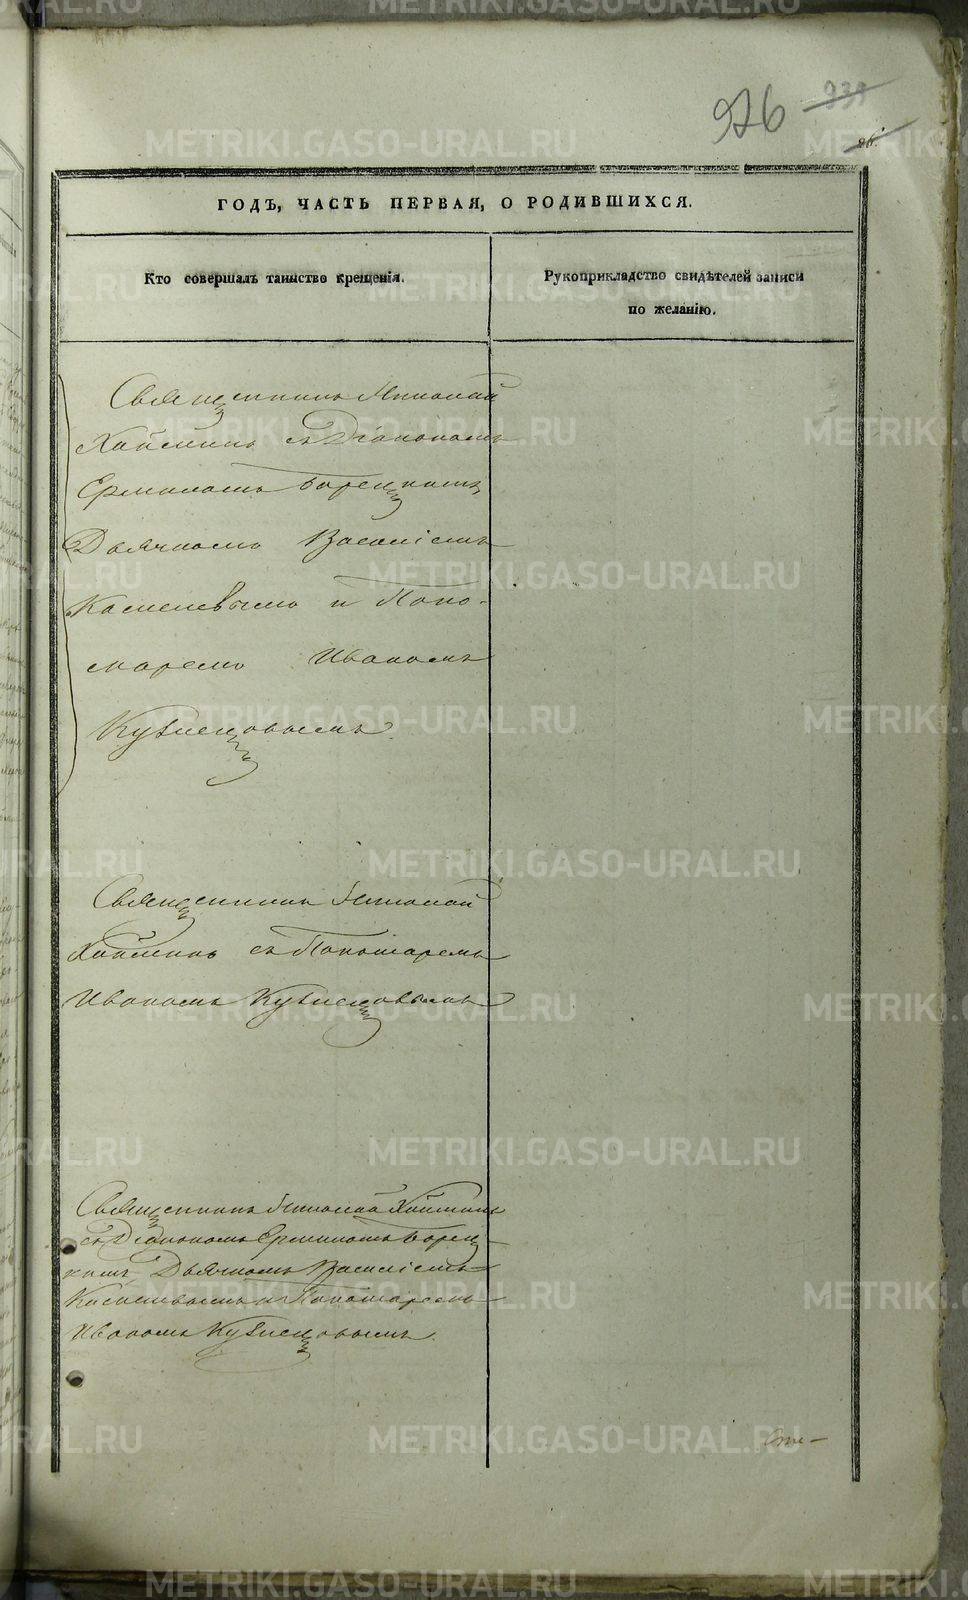 926 939
26.
ГОДЪ, ЧАСТЬ ПЕРВАЯ, О РОДИВШИХСЯ.
Кто совершалъ таинство крещенія.
Рукоприкладство свидѣтелей записи
по желанію.
Священникъ Николай
съ Діакономъ
Ермиломъ
Дьячкомъ Василіемъ
и Поно-
маремъ Иваномъ
Кузнецовымъ.
Священникъ Николай
съ Пономаремъ
Иваномъ Кузнецовымъ
Священникъ Николай
съ Діакономъ Ермиломъ
Дьячкомъ Василіемъ
и Пономаремъ
Иваномъ Кузнецовымъ.
METRIKI.GASO-URAL.RU